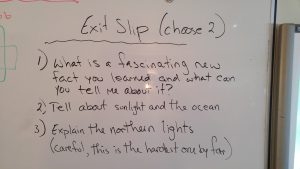 Exit Slip (choose 2)
1) What is a fascinating new
fact you learned and what can
you tell me about it?
2) Tell about sunlight and the ocean
3) Explain the northern lights
(careful, this is the hardest one by far)